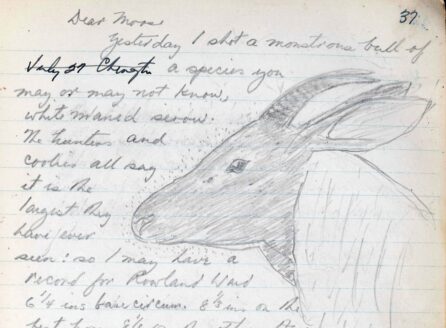 37
Dear Moose
Yesterday I shot a monstrous bull of
a species you
may or may not know,
white maned serow.
The hunters and
coolies all say
it is the
largest they
have ever
seen: so I may have a
record for Rowland Ward
6 1/4 ins base circum. 8 1/2 ins on the
best horn